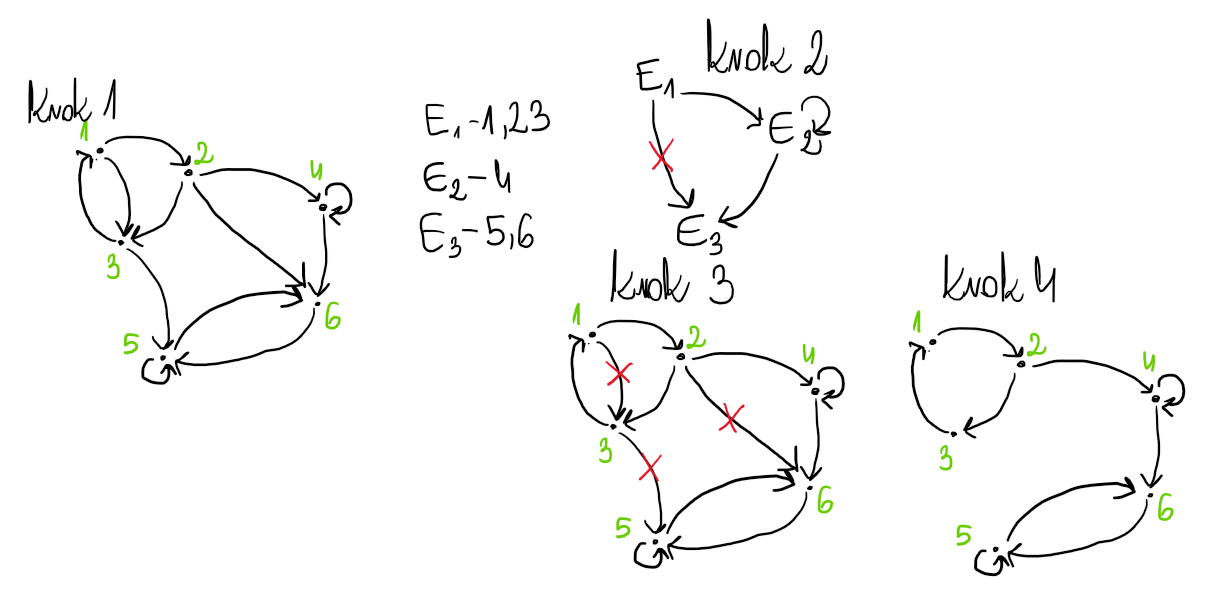 Krok 1
1
2
4
3
5
6
E1-1,23
E2-4
E3-5,6
Krok 2
E1
E2
E3
Krok 3
1
2
4
3
5
6
Krok 4
1
2
4
3
5
6